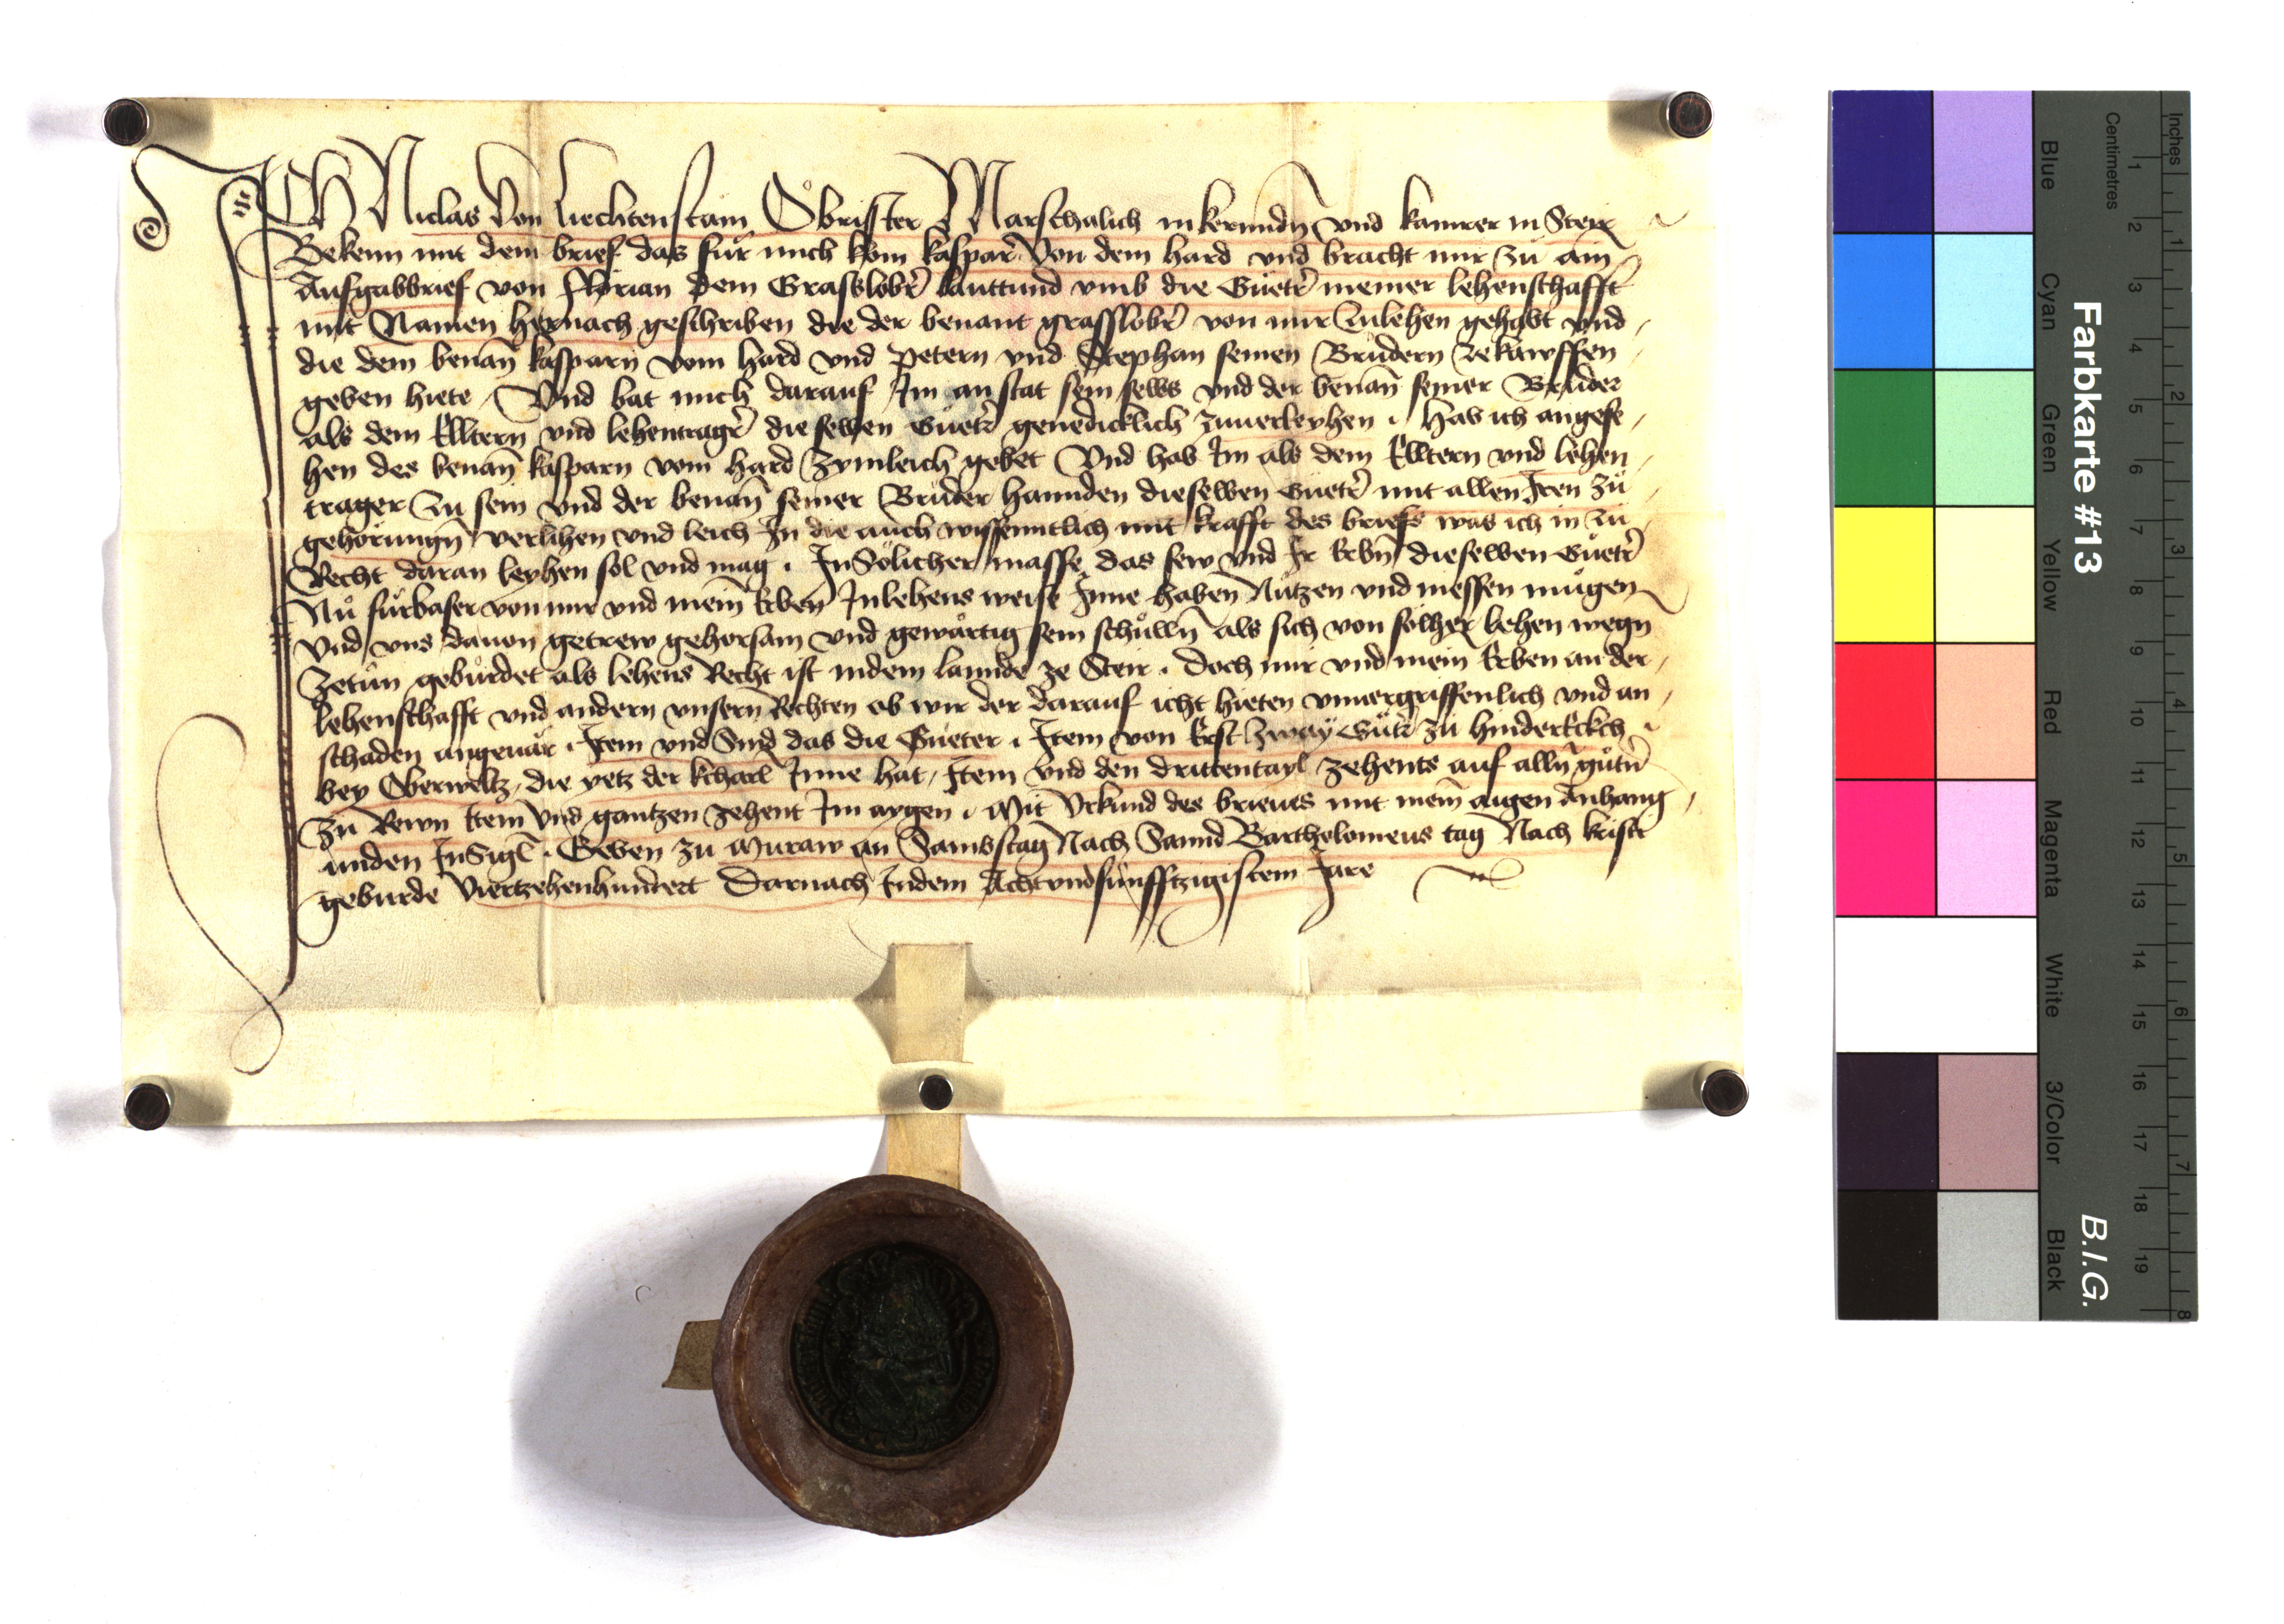 ICH Niclas von Liechtenstain Obrister Marschalich in kernndn̄ vnd kamrer in Steir
Bekenn mit dem brief das für mich kom kaspar von dem hard vnd bracht mir zu ain
Aufgabbrief von Florian dem Grasslobr̄ lauttund vmb die Güetr̄ meiner lehenschafft
mit Namen hernach geschriben die der benant grasslobr̄ von mir zulehen gehabt vnd
die dem benan̄ kasparn vom hard vnd petern vnd Stephan seinen Brüdern zekawffen
geben hiete / Vnd bat mich darauf Im an stat sein selbs vnd der benan̄ seiner Brüder
als dem Elltern vnd lehentragr̄ dieselben Güetr̄ genedicklich zuuerleyhen . hab ich angese
hen des benan̄ kasparn vom hard zymleich gebet Vnd hab Im als dem Elltern vnd lehen
trager zu sein vnd der benan̄ seiner Brüder hannden dieselben Güetr̄ mit allen Iren zu
gehörungn̄ verlihen vnd leich In die auch wissenntlich mit krafft des briefs was ich in zu
Recht daran leyhen sol vnd mag . In Solicher masse das sew vnd Ir Erbn̄ dieselben Güetr̄
Nu fürbaser von mir vnd mein̄ Erben Inlehens weise Inne haben Nützen vnd niessen mügen
vnd vns dauon getrew gehorsam vnd gewärtig sein schülln̄ als sich von solher lehen wegn̄
zetün gebürdet als lehens Recht ist indem lannde ze Steir . Doch mir vnd mein Erben an der
lehenschafft vnd andern vnsern Rechten ob wir der darauf icht hieten vnuergriffenlich vnd an
schaden angeuär . Item vnd Sind das die Güeter . Item von Erst zway Gütr̄ zu hinderEckch
bey Oberweltz, die yetz der kcharl Inne hat, Item vnd den drittentayl zehents auf alln̄ gütn̄
zu Rewn Item vnd gantzen zehent Im aygen . Mit Vrkund des brieues mit mein̄ aigen Anhang
unden InSigl . Geben zu Muraw an Sambstag Nach Sannd Bartholomeus tag Nach kristi
geburde Viertzehenhundert Darnach Indem Achtvndfünfftzigistem Jare
Farbkarte #13
B.I.G.
Inches
Centimetres
Blue
Cyan
Green
Yellow
Red
Magenta
White
3/Color
Black
1 2 3 4 5 6 7 8 9 10 11 12 13 14 15 16 17 18 19
1 2 3 4 5 6 7 8